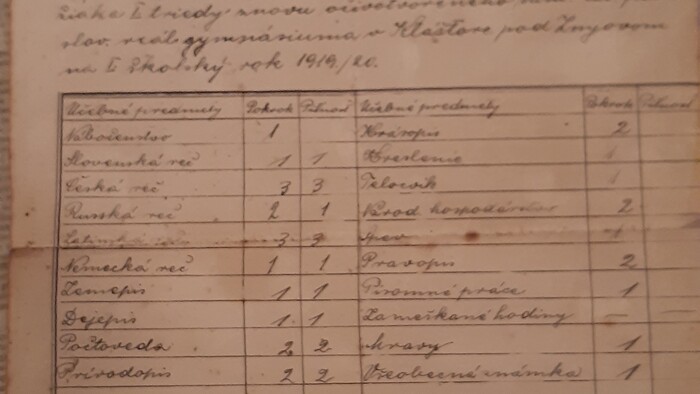 žiake I. triedy znovu oživotvoreného
slov. reál. gymnásiuma v Kláštore pod Znyovom
na I školský rok 1919/20.
Učebné predmety Pokrok Pilnosť Učebné predmety Pokrok Pilnosť
Náboženstvo 1 Krásopis 2
Slovenská reč 1 1 Kreslenie 1
Česká reč 3 3 Telocvik 1
Russká reč 2 1 Národ. hospodárstvo 2
Latinská reč 3 3 Spev 1
Nemecká reč 1 1 Pravopis 2
Zemepis 1 1 Písomné práce 1
Dejepis 1 1 Zameškané hodiny — —
Počtoveda 2 2 Mravy 1
Prírodopis 2 2 Všeobecná známka 1